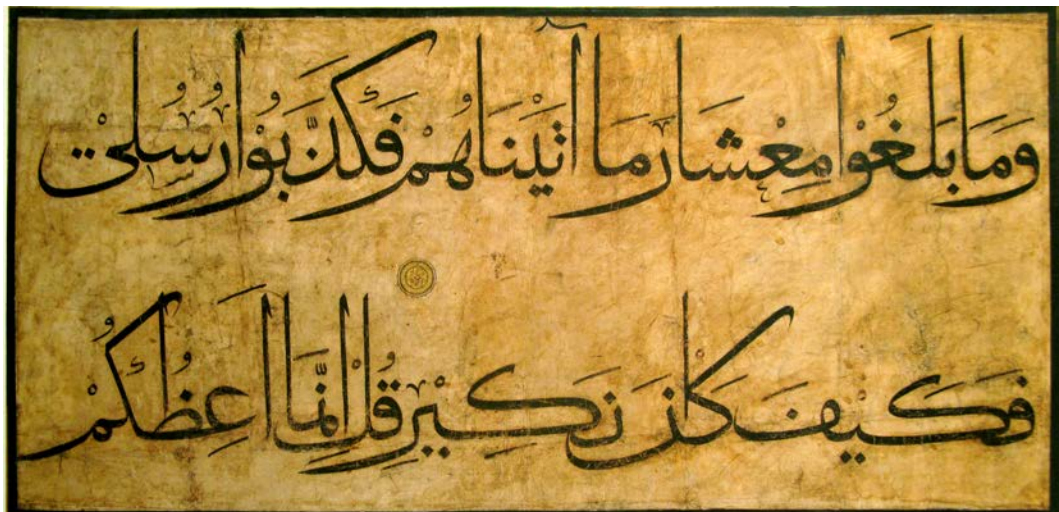 وَمَا بَلَغُوا مِعْشَارَ مَا آتَيْنَاهُمْ فَكَذَّبُوْا رُسُلِيْ
فَكَيْفَ كَانَ نَكِيْرِ قُلْ اِنَّمَا اَعِظُكُمْ